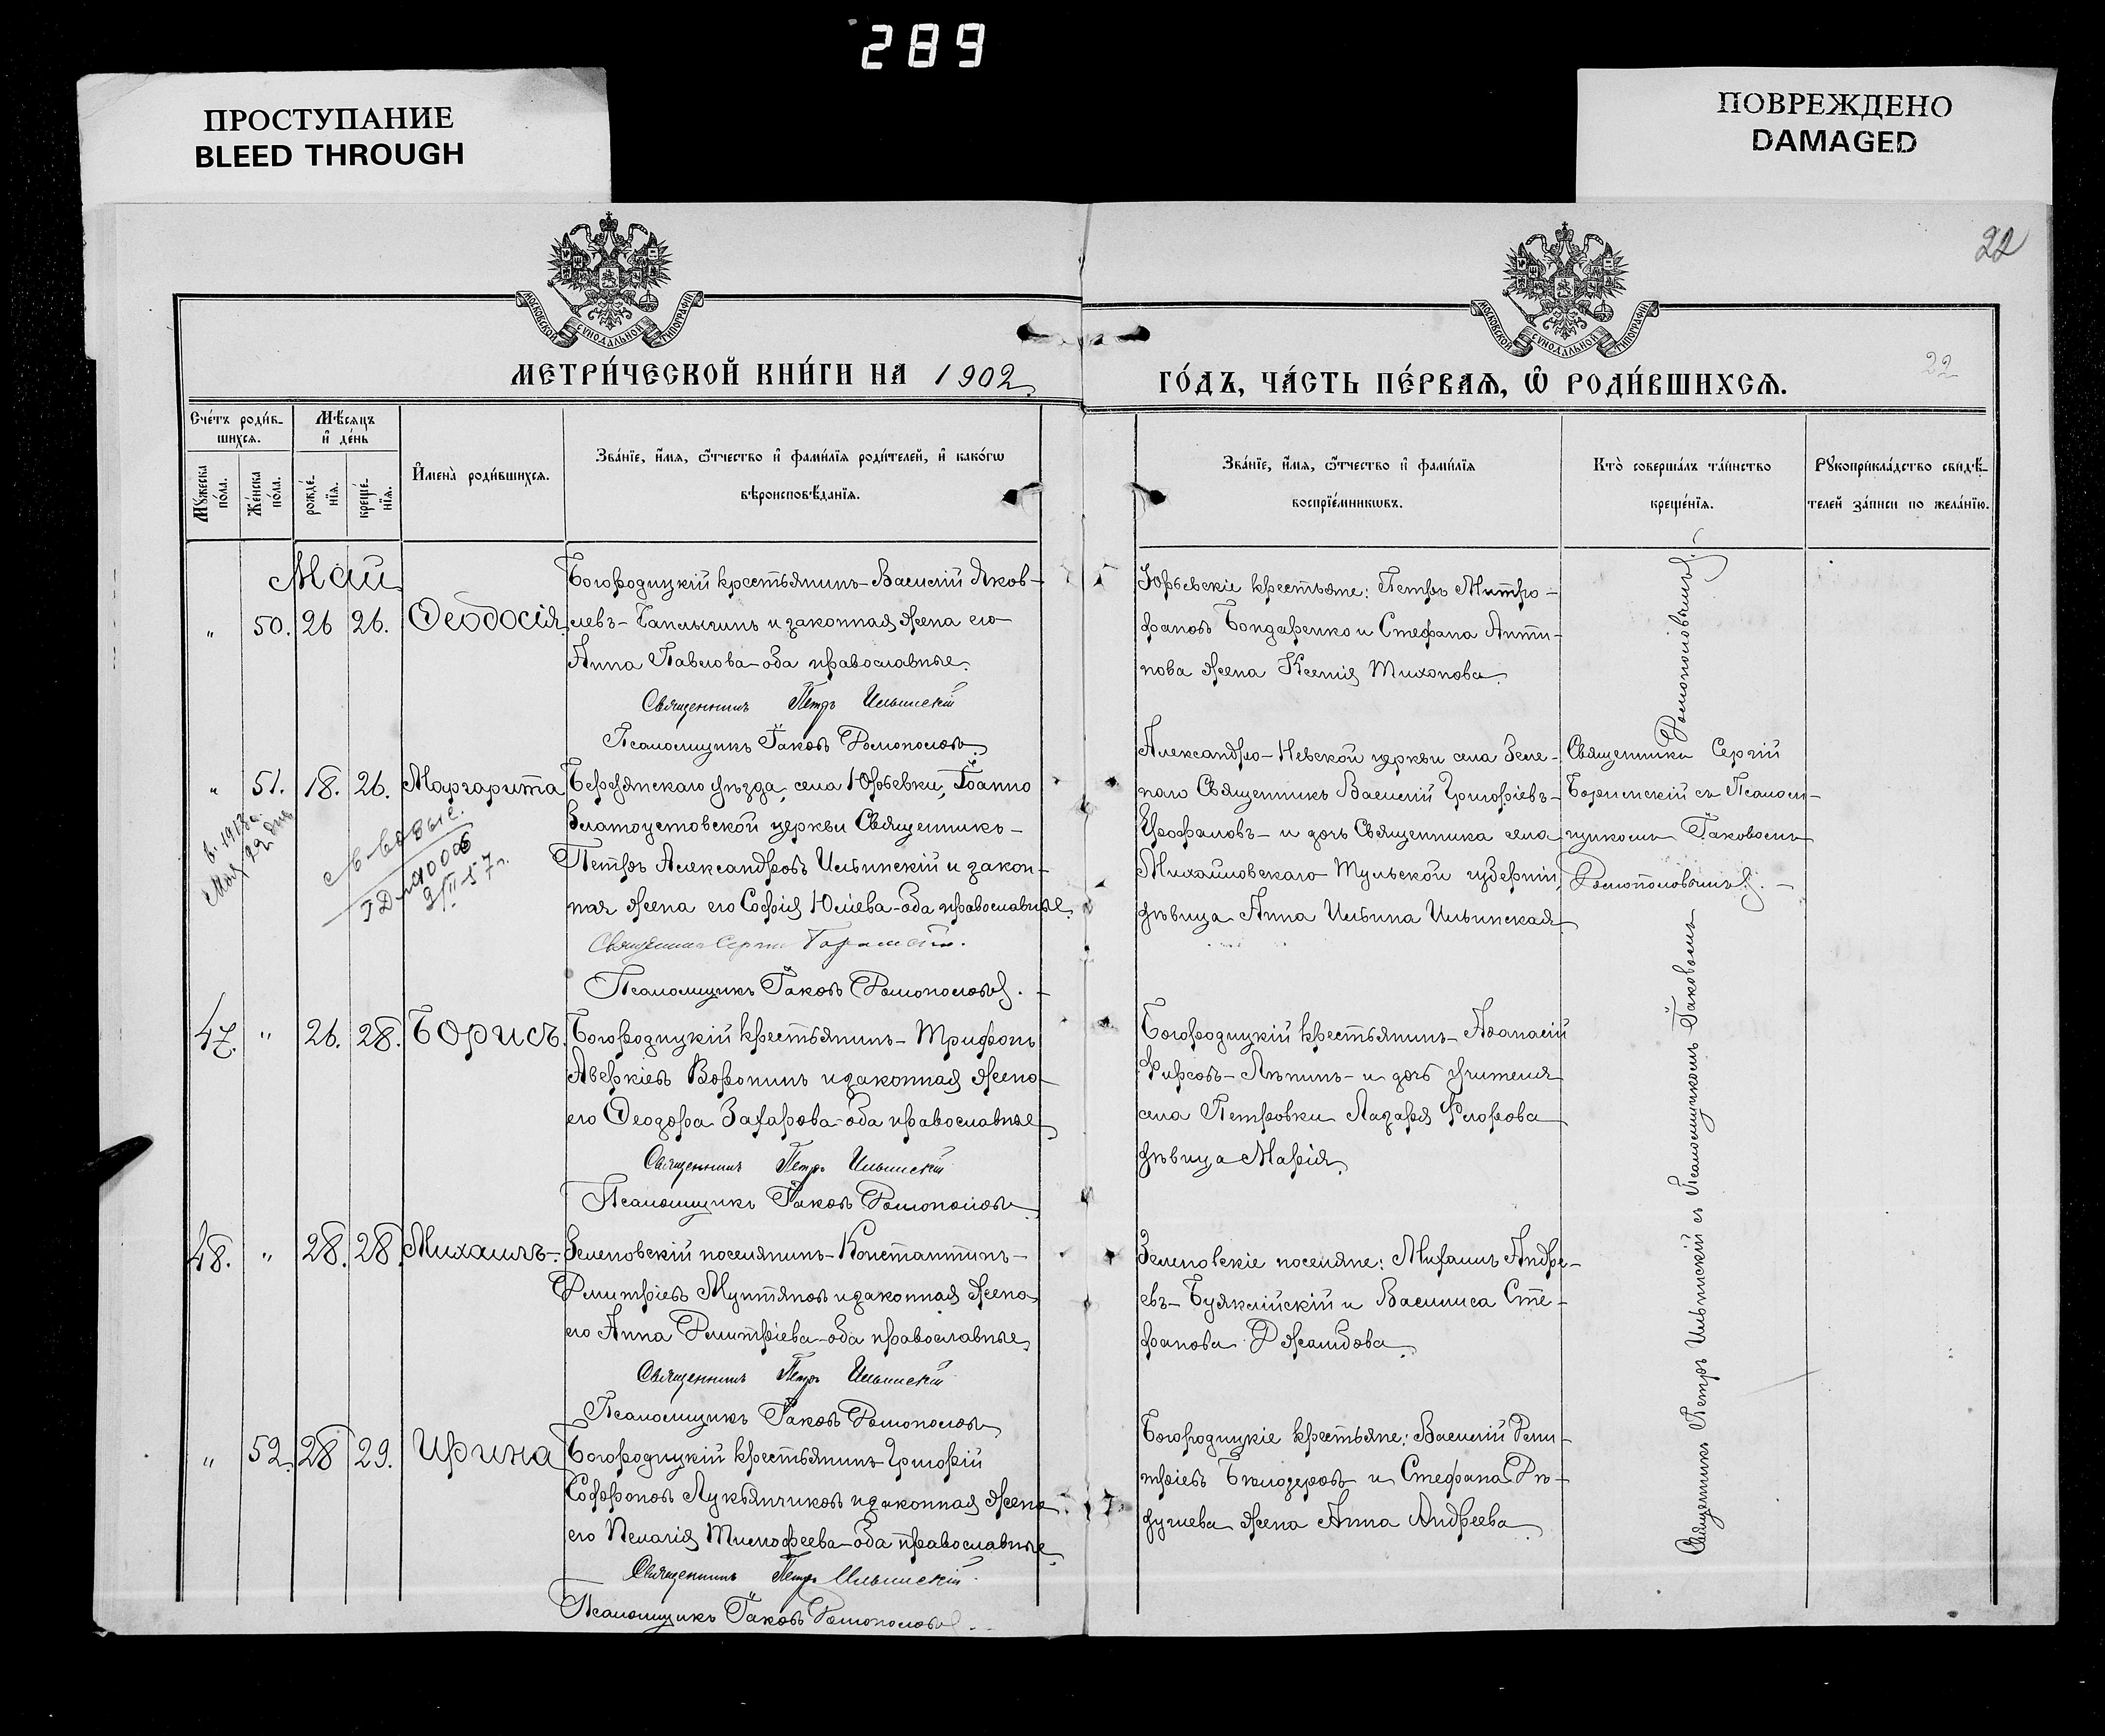 289
ПРОСТУПАНИЕ
BLEED THROUGH
ПОВРЕЖДЕНО
DAMAGED
22
МОСКОВСКОЙ СѴНОДАЛЬНОЙ ТИПОГРАФІИ
МОСКОВСКОЙ СѴНОДАЛЬНОЙ ТИПОГРАФІИ
МЕТРИ́ЧЕСКОЙ КНИ́ГИ НА 1902
ГО́ДЪ, ЧА́СТЬ ПЕ́РВАѦ, Ѽ РОДИ́ВШИХСѦ.
22
Сче́тъ роди́в-
шихсѧ.
Мꙋ́жеска по́ла.
Же́нска по́ла.
Мѣ́сѧцъ
и҆ де́нь
рожде́-
нїѧ.
креще́-
нїѧ.
И҆мена̀ роди́вшихсѧ.
Зва́нїе, и҆́мѧ, ѻ҆́тчество и҆ фами́лїѧ роди́телей, и҆ како́гѡ
вѣроисповѣ́данїѧ.
Зва́нїе, и҆́мѧ, ѻ҆́тчество и҆ фами́лїѧ
воспрїе́мникѡвъ.
Кто̀ соверша́лъ та́инство
креще́нїѧ.
Рꙋкоприкла́дство свидѣ́-
телей за́писи по жела́нїю.
Май
" 50. 26 26. Ѳеодосія
Богородицкій крестьянинъ Василій Яков-
левъ Чаплыгинъ и законная жена его
Анна Павлова оба православные.
Священникъ Петръ Ильинскій
Псаломщикъ Іаковъ
Юрьевскіе крестьяне: Петръ Митро-
фановъ Бондаренко и Стефана Анти-
пова жена Ксенія Тихонова.
" 51. 18. 26. Маргарита
в. 1918 г.
Мая 22 дня
Бердянскаго уѣзда, села Юрьевки, Іоанно
Златоустовской церкви Священникъ
Петръ Александровъ Ильинскій и закон-
ная жена его Софія Юліева оба православные.
Священникъ Сергій
Псаломщикъ Іаковъ
Александро-Невской церкви села Зеле-
наго Священникъ Василій Григоріевъ
и дочь Священника села
Михайловскаго Тульской губерніи,
дѣвица Анна Ильина Ильинская
Священникъ Сергій
съ Псалом-
щикомъ Іаковомъ
47. " 26. 28. Борисъ.
Богородицкій крестьянинъ Трифонъ
Аверкіевъ Воронинъ и законная жена
его Ѳеодора Захарова оба православные
Священникъ Петръ Ильинскій
Псаломщикъ Іаковъ
Богородицкій крестьянинъ Аѳанасій
Фирсовъ Лѣпинъ и дочь учителя
села Петровки Лазаря Флорова
дѣвица Марія.
48. " 28. 28. Михаилъ
Зеленовскій поселянинъ Константинъ
Димитріевъ Мунтяновъ и законная жена
его Анна Димитріева оба православные
Священникъ Петръ Ильинскій
Псаломщикъ Іаковъ
Зеленовскіе поселяне: Михаилъ Андре-
евъ Буяклійскій и Василиса Сте-
фанова
" 52. 28 29. Ирина
Богородицкій крестьянинъ Григорій
Софроновъ Лукьянчиковъ и законная жена
его Пелагія Тимофеева оба православные
Священникъ Петръ Ильинскій
Псаломщикъ Іаковъ
Богородицкіе крестьяне: Василій Дими-
тріевъ Бѣлозеровъ и Стефана
жена Анна Андреева
Священникъ Петръ Ильинскій съ Псаломщикомъ Іаковомъ